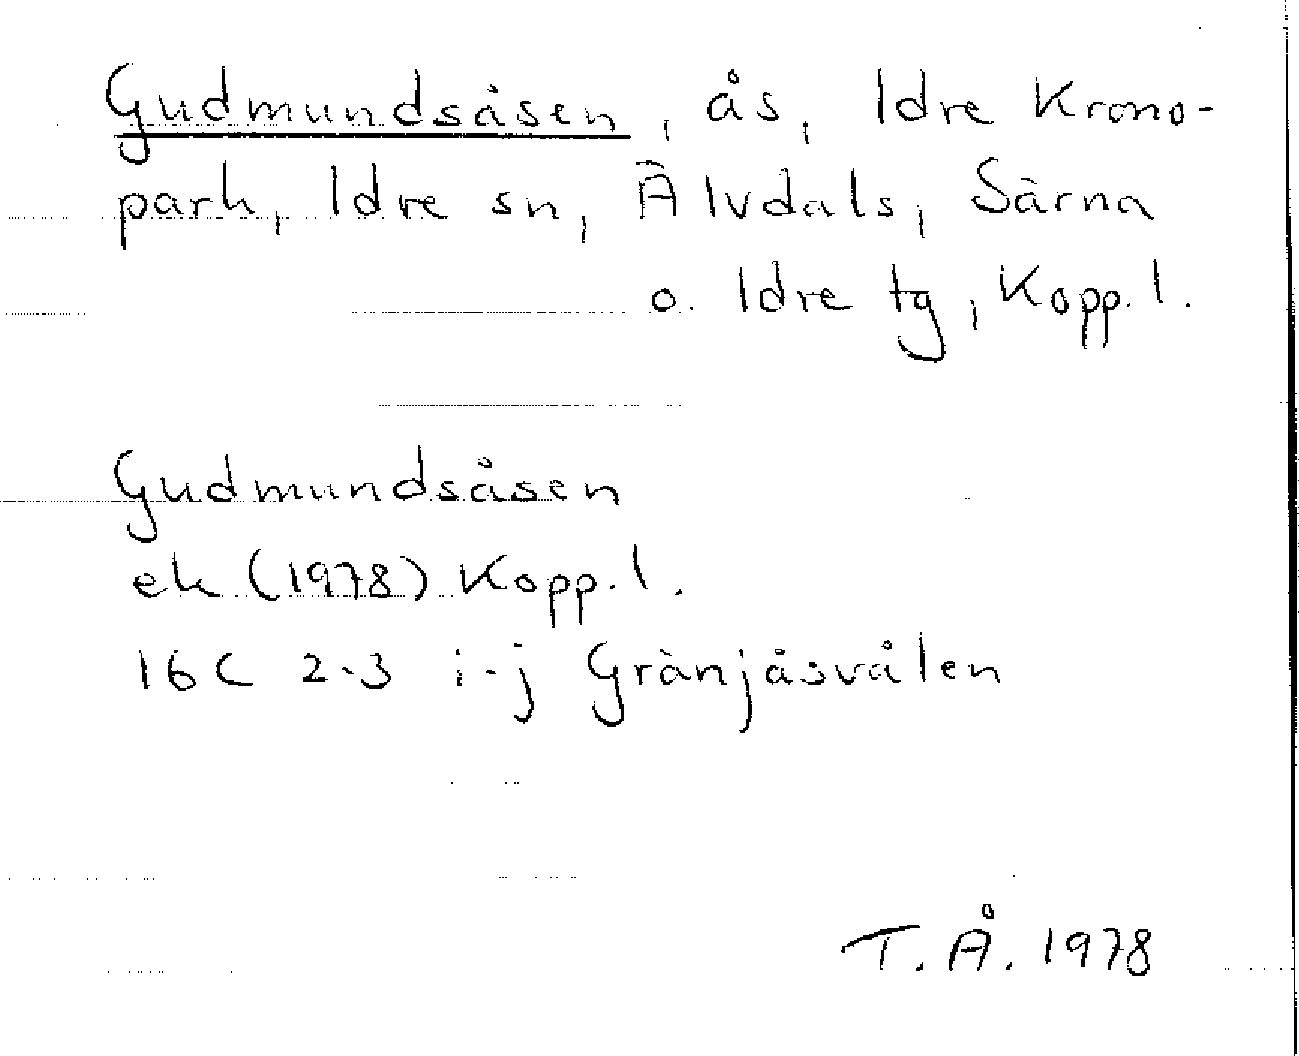 Gudmundsåsen, ås, Idre Krono-
park, Idre sn, Älvdals, Särna
o. Idre tg, Kopp. l.
Gudmundsåsen
ek (1978) Kopp. l.
16C 2-3 i-j Gränjåsvålen
T. Å. 1978